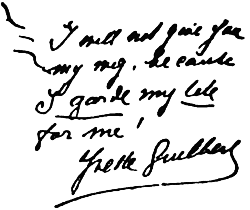 I will not give you
my meg, because
I garde my tete
for me!
Yvette Guilbert